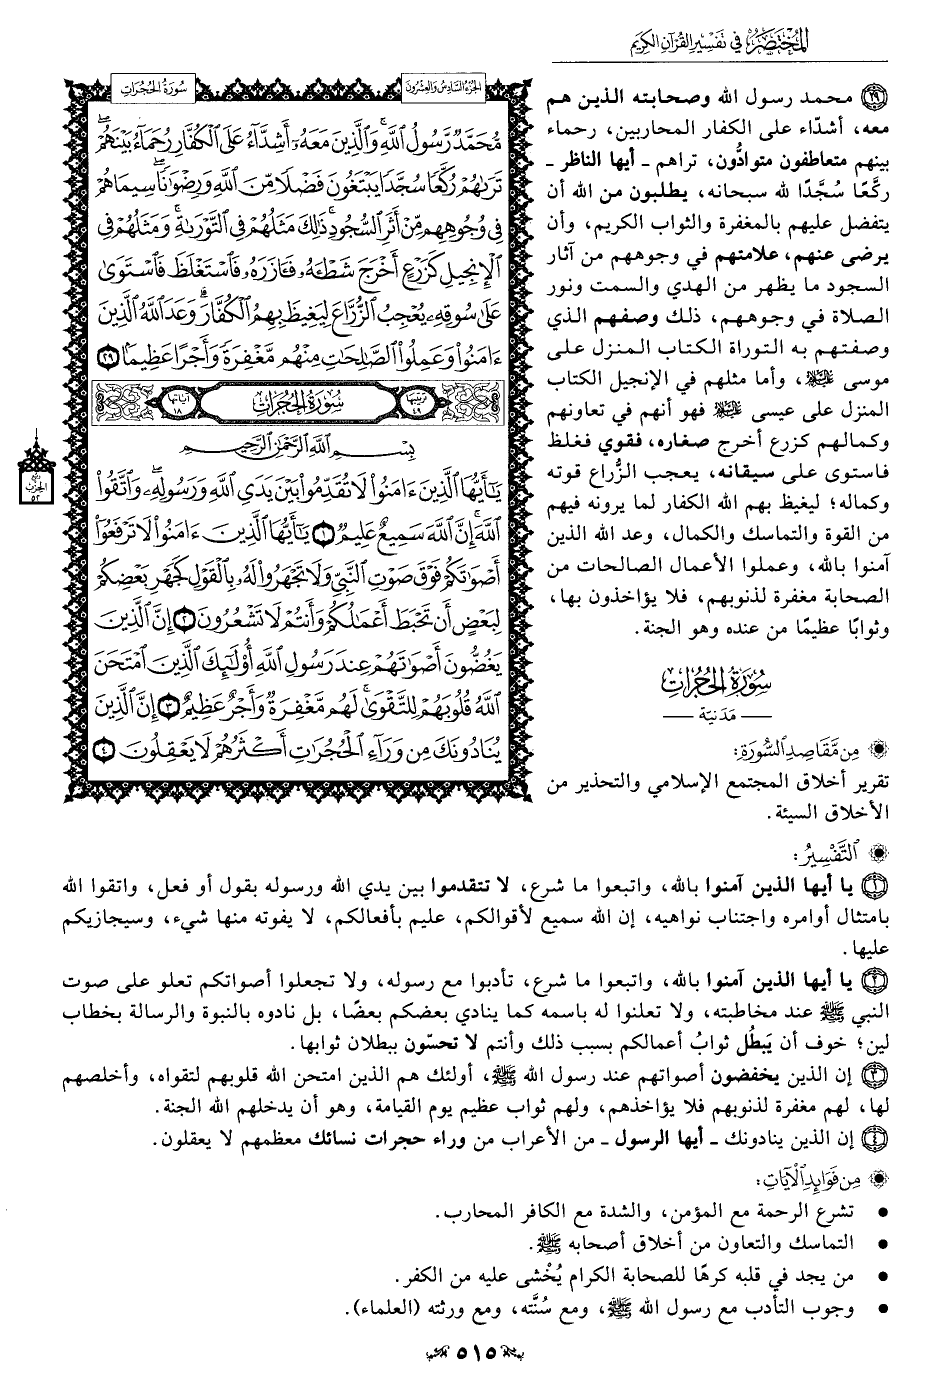 المختصر في تفسير القرآن الكريم
سورة الحجرات
الجزء السادس والعشرون
مُّحَمَّدٌ رَّسُولُ اللَّهِ وَالَّذِينَ مَعَهُ أَشِدَّاءُ عَلَى الْكُفَّارِ رُحَمَاءُ بَيْنَهُمْ
تَرَاهُمْ رُكَّعًا سُجَّدًا يَبْتَغُونَ فَضْلًا مِّنَ اللَّهِ وَرِضْوَانًا سِيمَاهُمْ
فِي وُجُوهِهِم مِّنْ أَثَرِ السُّجُودِ ذَٰلِكَ مَثَلُهُمْ فِي التَّوْرَاةِ وَمَثَلُهُمْ فِي
الْإِنجِيلِ كَزَرْعٍ أَخْرَجَ شَطْأَهُ فَآزَرَهُ فَاسْتَغْلَظَ فَاسْتَوَىٰ
عَلَىٰ سُوقِهِ يُعْجِبُ الزُّرَّاعَ لِيَغِيظَ بِهِمُ الْكُفَّارَ وَعَدَ اللَّهُ الَّذِينَ
ءَامَنُوا وَعَمِلُوا الصَّالِحَاتِ مِنْهُم مَّغْفِرَةً وَأَجْرًا عَظِيمًا ٢٩
ترتيبها ٤٩ سورة الحجرات آياتها ١٨
بِسْمِ اللَّهِ الرَّحْمَٰنِ الرَّحِيمِ
يَا أَيُّهَا الَّذِينَ ءَامَنُوا لَا تُقَدِّمُوا بَيْنَ يَدَيِ اللَّهِ وَرَسُولِهِ وَاتَّقُوا
اللَّهَ إِنَّ اللَّهَ سَمِيعٌ عَلِيمٌ ١ يَا أَيُّهَا الَّذِينَ ءَامَنُوا لَا تَرْفَعُوا
أَصْوَاتَكُمْ فَوْقَ صَوْتِ النَّبِيِّ وَلَا تَجْهَرُوا لَهُ بِالْقَوْلِ كَجَهْرِ بَعْضِكُمْ
لِبَعْضٍ أَن تَحْبَطَ أَعْمَالُكُمْ وَأَنتُمْ لَا تَشْعُرُونَ ٢ إِنَّ الَّذِينَ
يَغُضُّونَ أَصْوَاتَهُمْ عِندَ رَسُولِ اللَّهِ أُولَٰئِكَ الَّذِينَ امْتَحَنَ
اللَّهُ قُلُوبَهُمْ لِلتَّقْوَىٰ لَهُم مَّغْفِرَةٌ وَأَجْرٌ عَظِيمٌ ٣ إِنَّ الَّذِينَ
يُنَادُونَكَ مِن وَرَاءِ الْحُجُرَاتِ أَكْثَرُهُمْ لَا يَعْقِلُونَ ٤
ربع الحزب ٥٢
٢٩ محمد رسول الله وصحابته الذين هم
معه، أشدّاء على الكفار المحاربين، رحماء
بينهم متعاطفون متوادُّون، تراهم ـ أيها الناظر ـ
ركَّعًا سُجَّدًا لله سبحانه، يطلبون من الله أن
يتفضل عليهم بالمغفرة والثواب الكريم، وأن
يرضى عنهم، علامتهم في وجوههم من آثار
السجود ما يظهر من الهدي والسمت ونور
الصلاة في وجوههم، ذلك وصفهم الذي
وصفتهم به التوراة الكتاب المنزل على
موسى عليه السلام، وأما مثلهم في الإنجيل الكتاب
المنزل على عيسى عليه السلام فهو أنهم في تعاونهم
وكمالهم كزرع أخرج صغاره، فقوي فغلظ
فاستوى على سيقانه، يعجب الزُّراع قوته
وكماله؛ ليغيظ بهم الله الكفار لما يرونه فيهم
من القوة والتماسك والكمال، وعد الله الذين
آمنوا بالله، وعملوا الأعمال الصالحات من
الصحابة مغفرة لذنوبهم، فلا يؤاخذون بها،
وثوابًا عظيمًا من عنده وهو الجنة.
سورة الحجرات
ـ مدنية ـ
من مقاصد السورة:
تقرير أخلاق المجتمع الإسلامي والتحذير من
الأخلاق السيئة.
التفسير:
١ يا أيها الذين آمنوا بالله، واتبعوا ما شرع، لا تتقدموا بين يدي الله ورسوله بقول أو فعل، واتقوا الله
بامتثال أوامره واجتناب نواهيه، إن الله سميع لأقوالكم، عليم بأفعالكم، لا يفوته منها شيء، وسيجازيكم
عليها.
٢ يا أيها الذين آمنوا بالله، واتبعوا ما شرع، تأدبوا مع رسوله، ولا تجعلوا أصواتكم تعلو على صوت
النبي ﷺ عند مخاطبته، ولا تعلنوا له باسمه كما ينادي بعضكم بعضًا، بل نادوه بالنبوة والرسالة بخطاب
لين؛ خوف أن يَبطُل ثوابُ أعمالكم بسبب ذلك وأنتم لا تحسّون ببطلان ثوابها.
٣ إن الذين يخفضون أصواتهم عند رسول الله ﷺ، أولئك هم الذين امتحن الله قلوبهم لتقواه، وأخلصهم
لها، لهم مغفرة لذنوبهم فلا يؤاخذهم، ولهم ثواب عظيم يوم القيامة، وهو أن يدخلهم الله الجنة.
٤ إن الذين ينادونك ـ أيها الرسول ـ من الأعراب من وراء حجرات نسائك معظمهم لا يعقلون.
من فوائد الآيات:
• تشرع الرحمة مع المؤمن، والشدة مع الكافر المحارب.
• التماسك والتعاون من أخلاق أصحابه ﷺ.
• من يجد في قلبه كرهًا للصحابة الكرام يُخْشى عليه من الكفر.
• وجوب التأدب مع رسول الله ﷺ، ومع سُنَّته، ومع ورثته (العلماء).
٥١٥